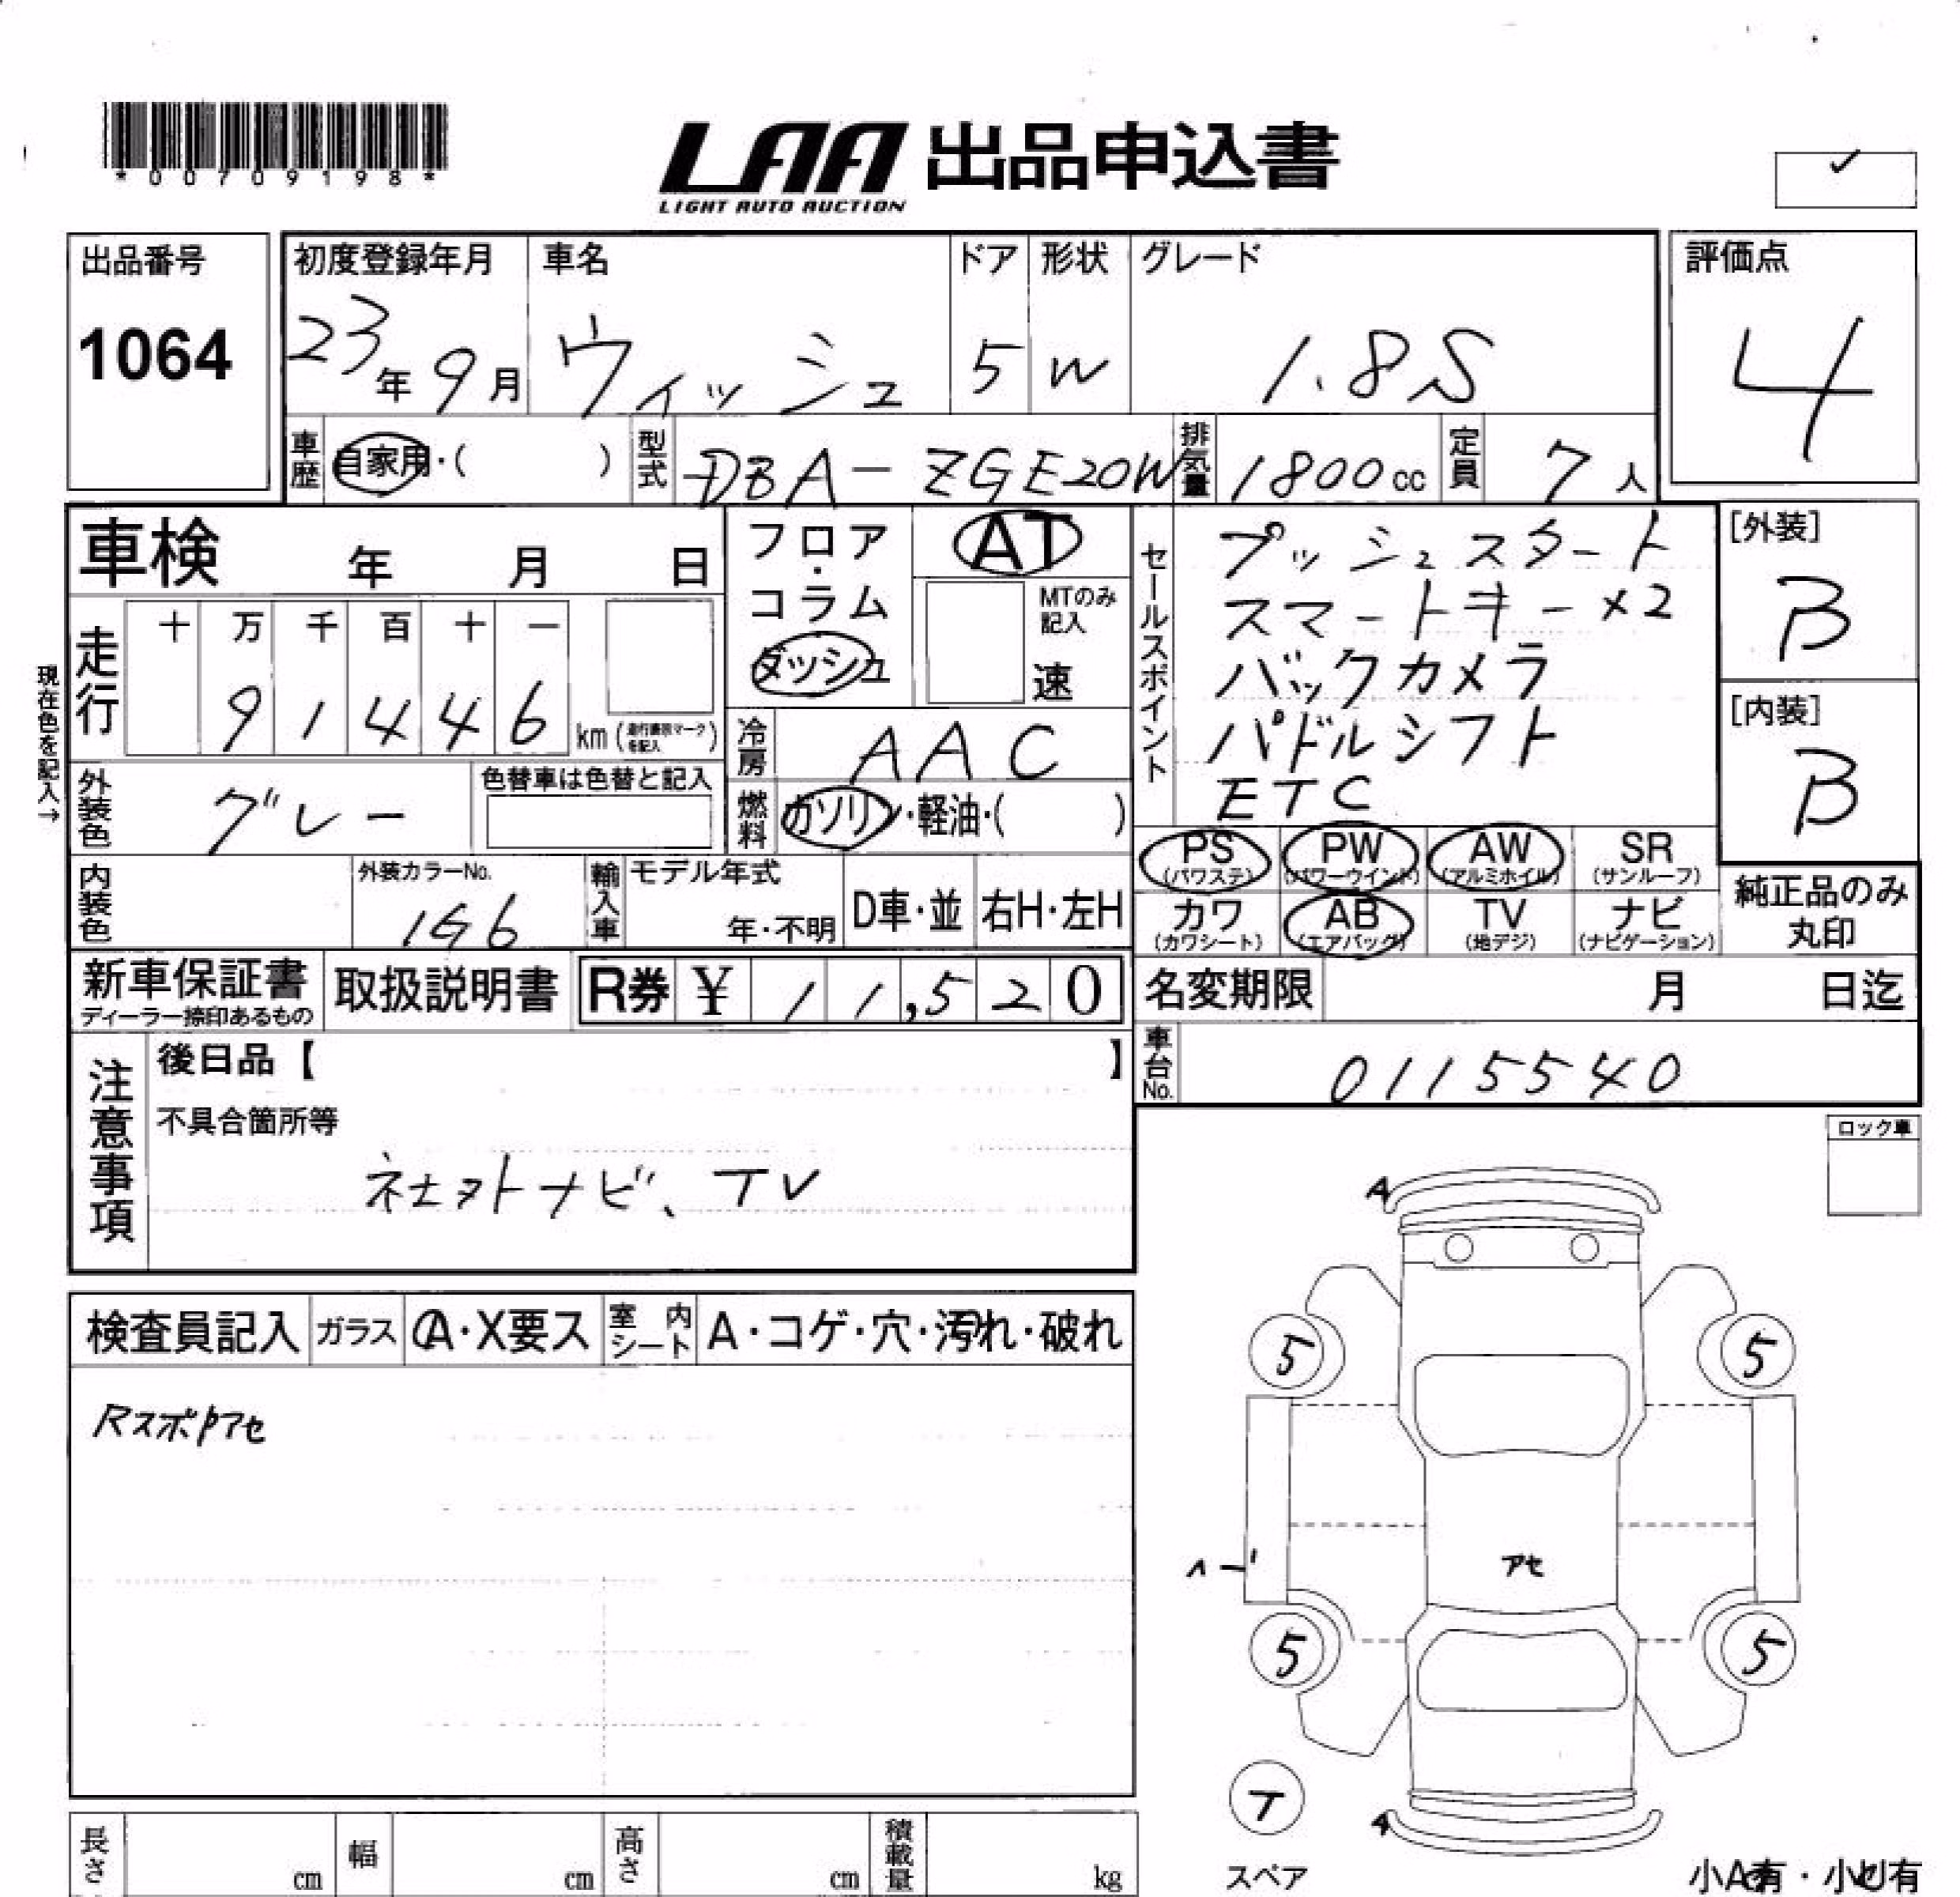 *00709198*
LAA 出品申込書
LIGHT AUTO AUCTION
✓
出品番号
1064
初度登録年月
23年9月
車名
ウィッシュ
ドア
5
形状
W
グレード
1.8S
評価点
4
車歴
自家用・( )
型式
DBA-ZGE20W
排気量
1800cc
定員
7人
車検 年 月 日
フロア・コラム
ダッシュ
AT
MTのみ記入
速
セールスポイント
プッシュスタート
スマートキー×2
バックカメラ
パドルシフト
ETC
[外装]
B
[内装]
B
現在色を記入→
走行
十 万 千 百 十 一
9 1 4 4 6 km(走行表示マークを記入)
冷房
AAC
外装色
グレー
色替車は色替と記入
燃料
ガソリン・軽油・( )
PS (パワステ)
PW (パワーウインド)
AW (アルミホイル)
SR (サンルーフ)
カワ (カワシート)
AB (エアバッグ)
TV (地デジ)
ナビ (ナビゲーション)
純正品のみ丸印
内装色
外装カラーNo.
1G6
輸入車
モデル年式
年・不明
D車・並
右H・左H
新車保証書
ディーラー捺印あるもの
取扱説明書
R券 ¥ 11,520
名変期限 月 日迄
車台No.
0115540
注意事項
後日品【 】
不具合箇所等
社外ナビ、TV
ロック車
検査員記入
ガラス
A・X要ス
室内シート
A・コゲ・穴・汚れ・破れ
Rスポアセ
A
5
5
アセ
5
5
T
スペア
A
小A有・小U有
長さ cm
幅 cm
高さ cm
積載量 kg